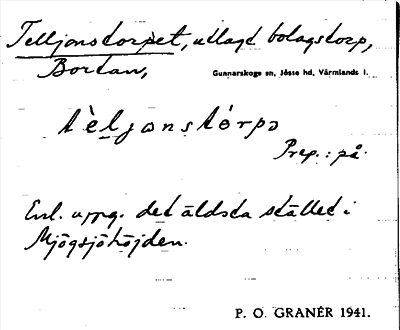 Telljonstorpet, utlagt bolagstorp,
Bortan,
Gunnarskogs sn, Jösse hd, Värmlands l.
tèljonstórpə
Prep.: på.
Enl. uppg. det äldsta stället i
Mjögsjöhöjden.
P. O. GRANÉR 1941.